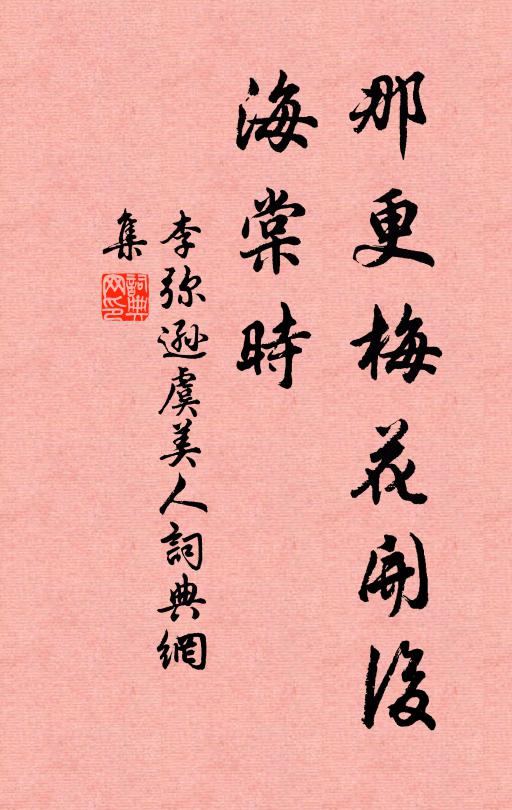 那更梅花開後
海棠時
李弥遜虞美人詞典網
集
詞典
网印